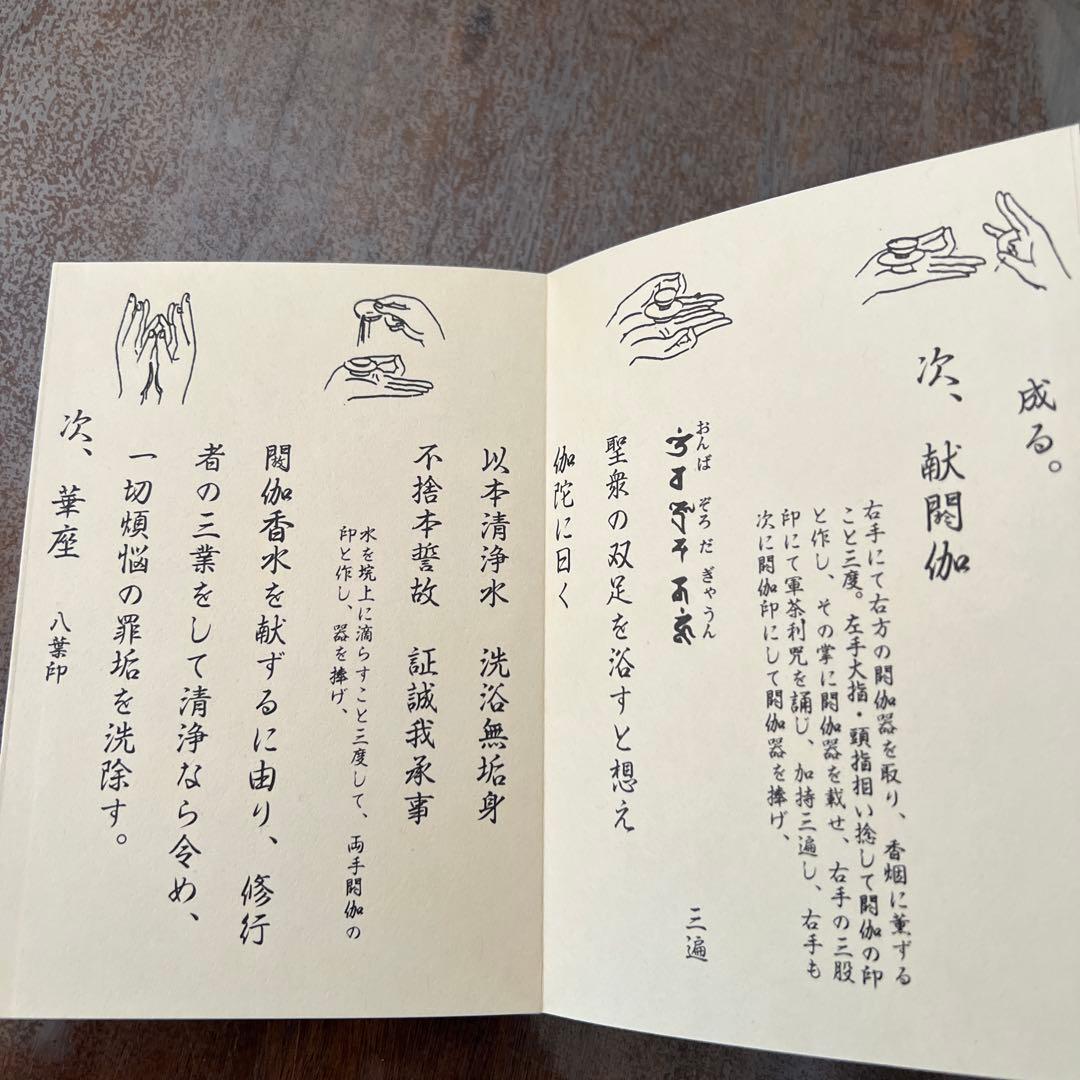 成る。
次、献閼伽
右手にて右方の閼伽器を取り、香烟に薫ずる
こと三度。左手大指・頭指相い捻して閼伽の印
と作し、その掌に閼伽器を載せ、右手の三股
印にて軍荼利咒を誦じ、加持三遍し、右手も
次に閼伽印にして閼伽器を捧げ、
おんば ぞろ だ ぎゃうん
三遍
聖衆の双足を浴すと想え
伽陀に曰く
以本清浄水 洗浴無垢身
不捨本誓故 証誠我承事
水を垸上に滴らすこと三度して、両手閼伽の
印と作し、器を捧げ、
閼伽香水を献ずるに由り、修行
者の三業をして清浄なら令め、
一切煩悩の罪垢を洗除す。
次、華座 八葉印